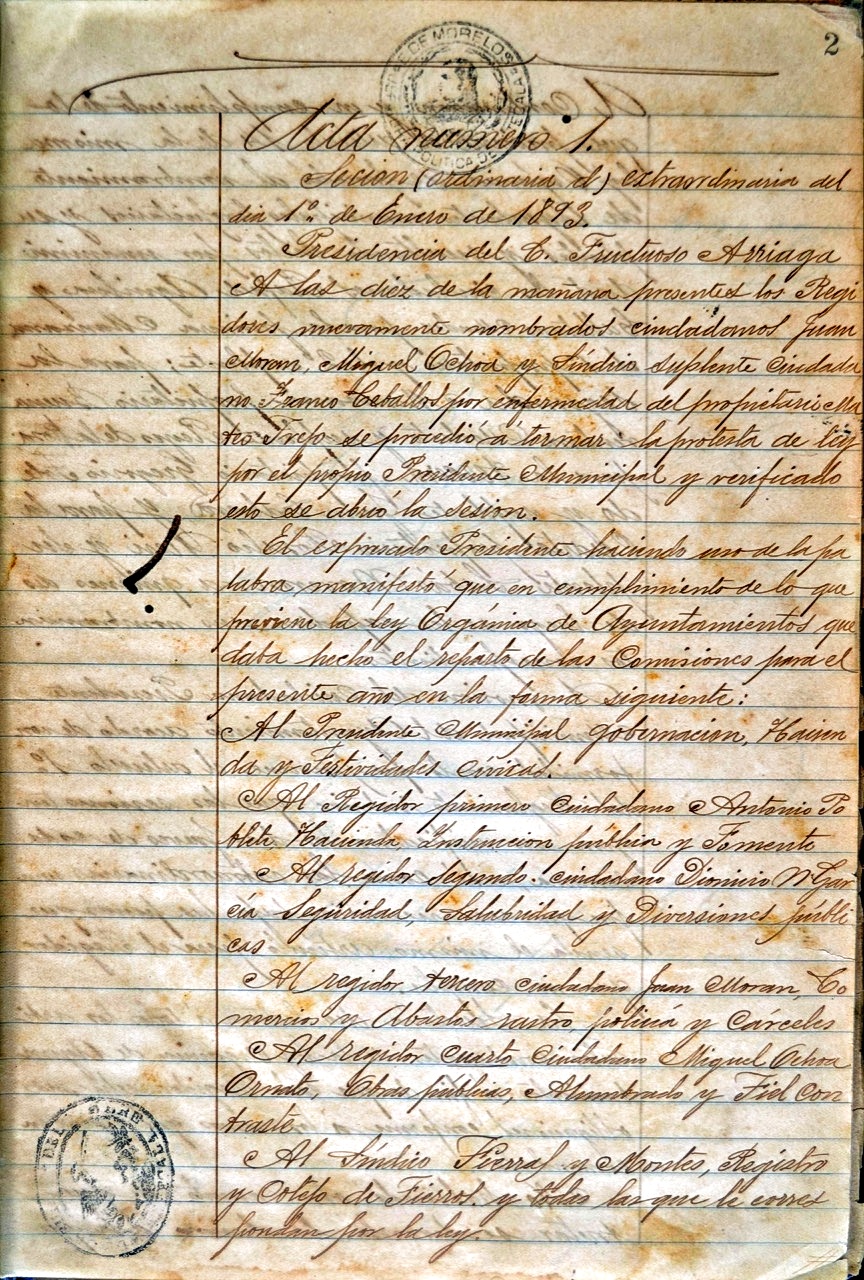 2
Acta numero 1.
Secion (ordinaria d) extraordinaria del
dia 1º. de Enero de 1893.
Presidencia del C. Fructuoso Arriaga
A las diez de la mañana presentes los Regi
dores nuevamente nombrados ciudadanos Juan
Moran, Miguel Ochoa y Síndico suplente ciudada
no Franco Ceballos por enfermedad del propietario Ma
teo Trejo se procedió á tormar la protesta de ley
por el propio Presidente Municipal y verificado
esto se abrió la sesion.
El expresado Presidente haciendo uso de la pa
labra, manifestó que en cumplimiento de lo que
previene la ley Orgánica de Ayuntamientos que
daba hecho el reparto de las Comisiones para el
presente año en la forma siguiente:
Al Presidente Municipal gobernacion, Hacien
da y Festividades civicas.
Al Regidor primero ciudadano Antonio Po
blete Hacienda Instruccion pública y Fomento
Al regidor segundo. ciudadano Dionicio M Gar
cía Seguridad, Salubridad y Diversiones públi
cas
Al regidor tercero ciudadano Juan Moran, Co
mercios y Abastos rastro policia y Cárceles
Al regidor cuarto ciudadano Miguel Ochoa
Ornato, Obras públicas, Alumbrado y Fiel Con
traste
Al Síndico Tierras y Montes, Registro
y Cotejo de Fierros y todas las que le corres
pondan por la ley.